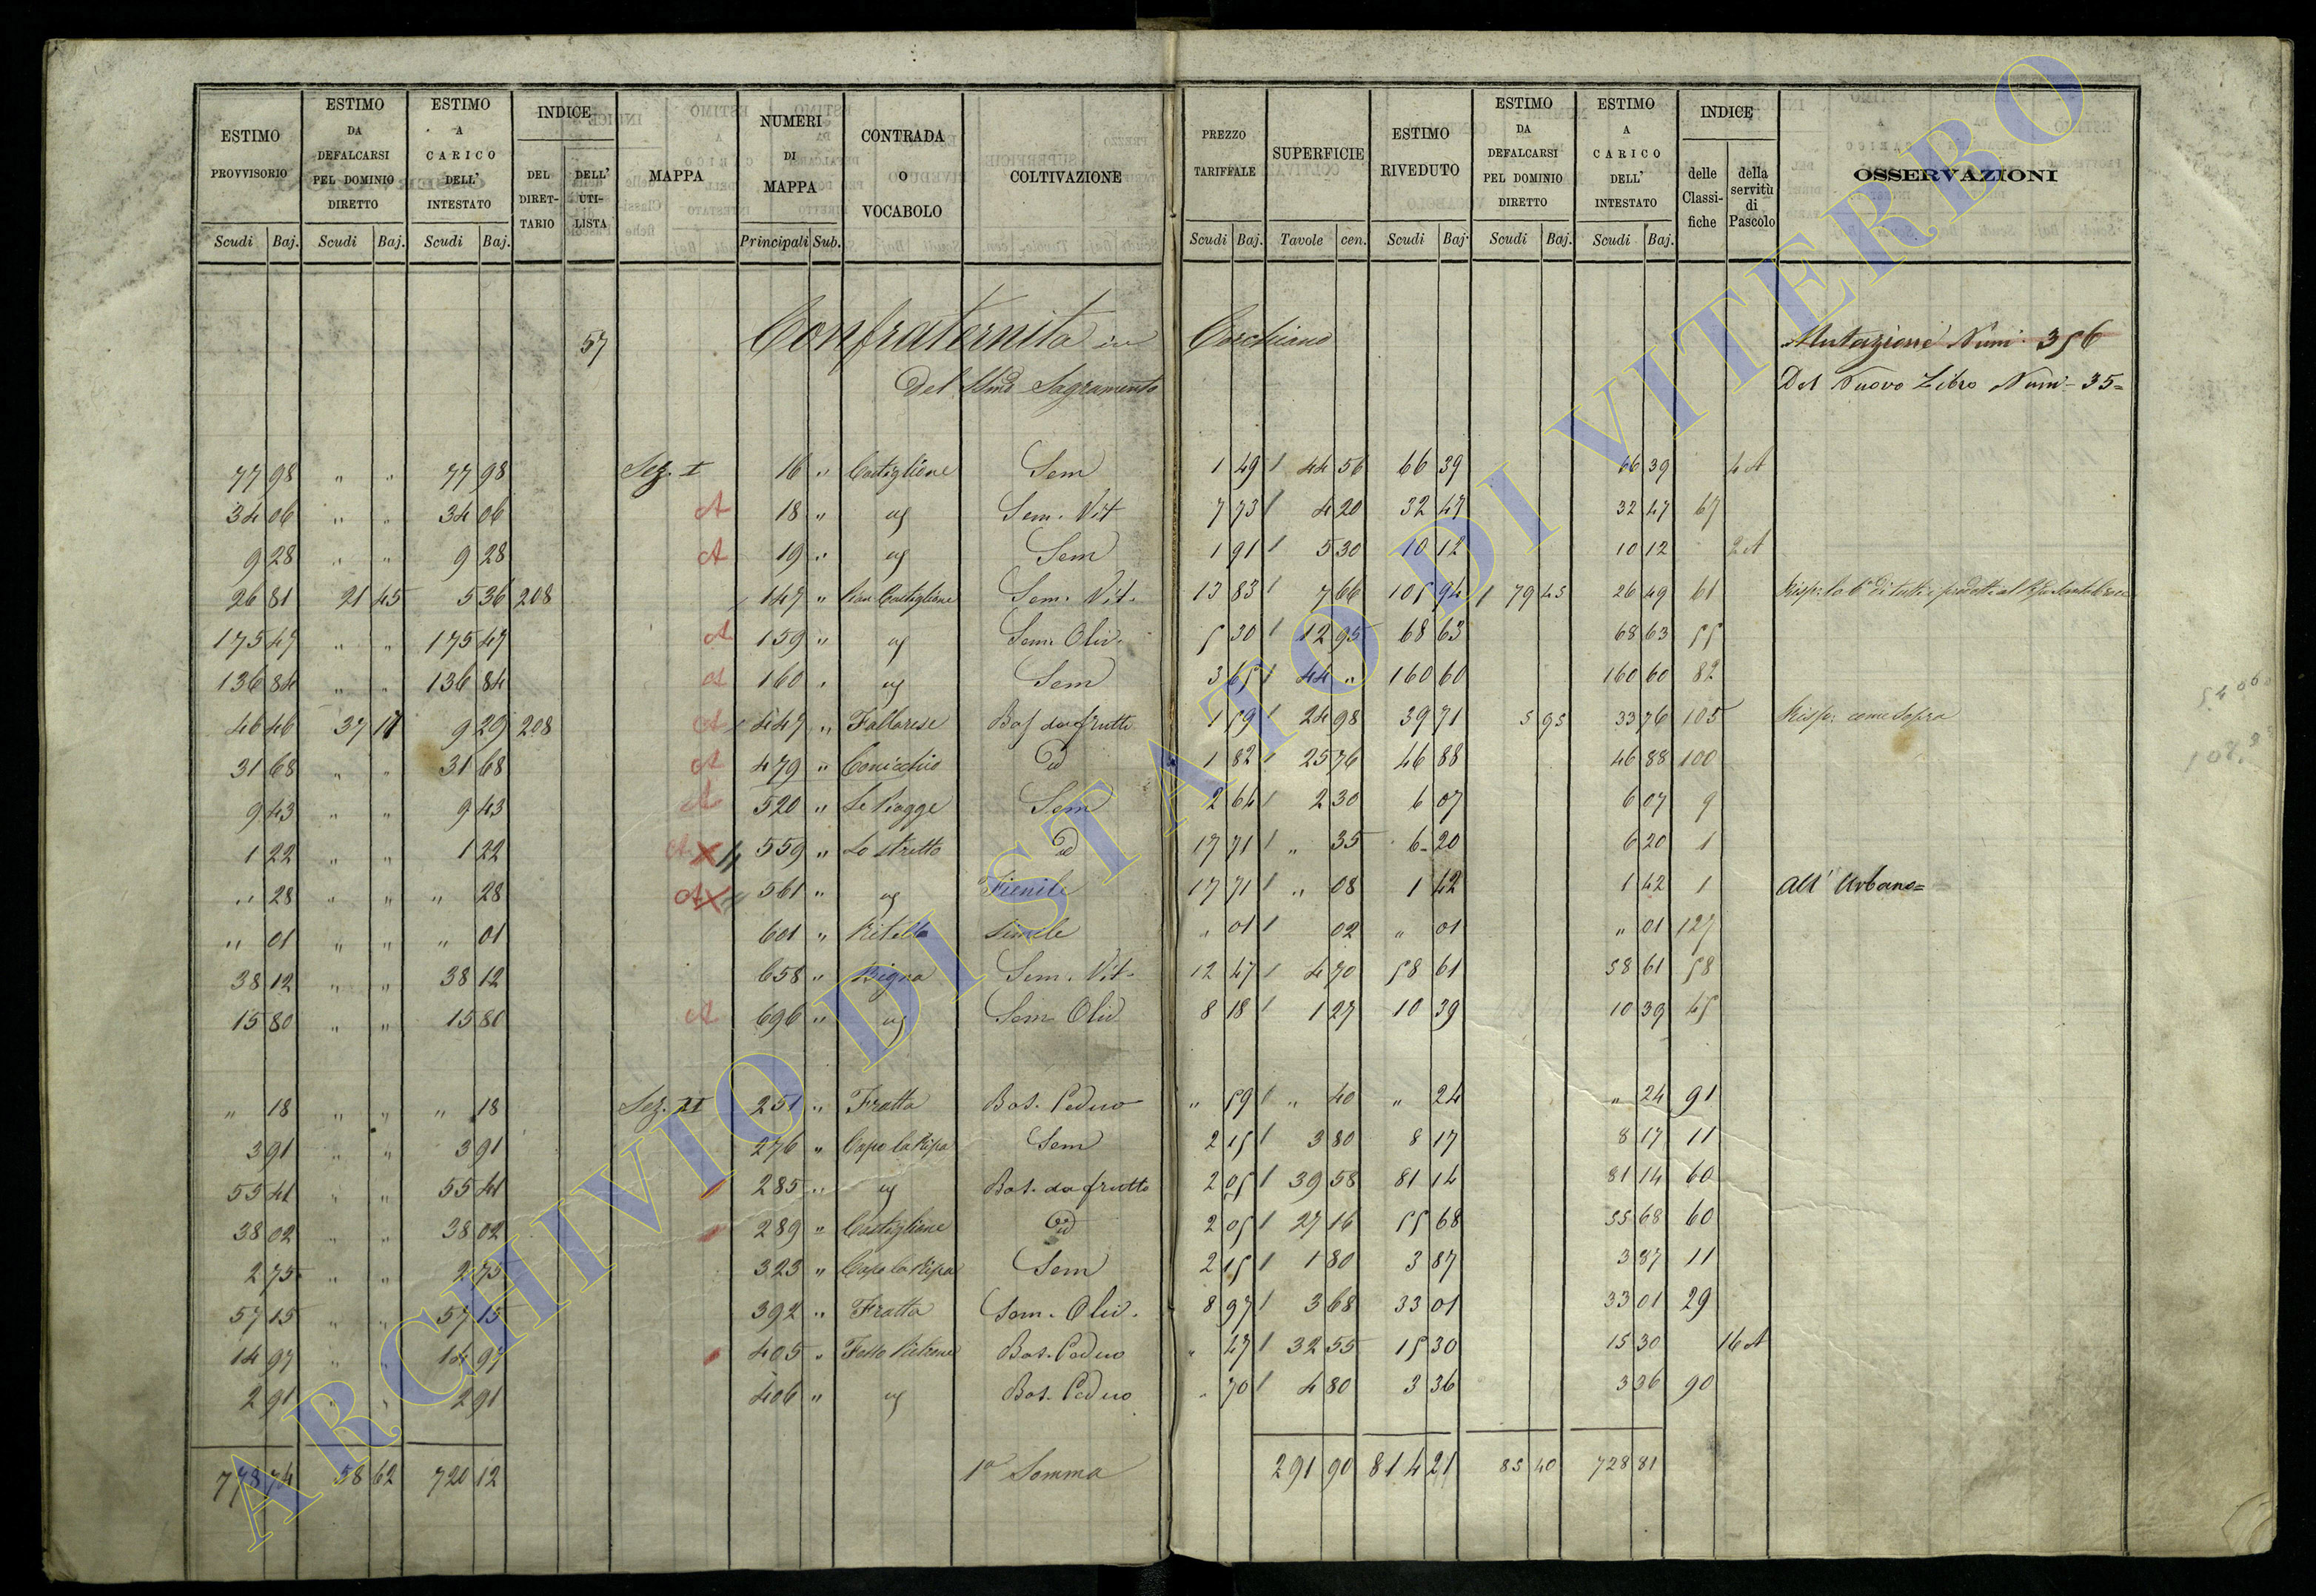 ESTIMO PROVVISORIO | ESTIMO DA DEFALCARSI PEL DOMINIO DIRETTO | ESTIMO A CARICO DELL' INTESTATO | INDICE DEL DIRET-TARIO | DELL' UTI-LISTA | MAPPA | NUMERI DI MAPPA | CONTRADA O VOCABOLO | COLTIVAZIONE | PREZZO TARIFFALE | SUPERFICIE | ESTIMO RIVEDUTO | ESTIMO DA DEFALCARSI PEL DOMINIO DIRETTO | ESTIMO A CARICO DELL' INTESTATO | INDICE delle Classi-fiche | della servitù di Pascolo | OSSERVAZIONI
Scudi Baj. | Scudi Baj. | Scudi Baj. | Principali Sub. | Scudi Baj. | Tavole cen. | Scudi Baj. | Scudi Baj. | Scudi Baj.
57 Confraternita in Corchiano Mutazione Num. 356
Del SSmo Sagramento Del Nuovo Libro Num- 35=
77 98 " " 77 98 Sez. I 16 " Castiglione Sem 1 49 44 56 66 39 66 39 4 A
34 06 " " 34 06 A 18 " " Sem. Vit 7 73 4 20 32 47 32 47 67
9 28 " " 9 28 A 19 " " Sem 1 91 5 30 10 12 10 12 2 A
26 81 21 45 5 36 208 147 " Pian Castiglione Sem. Vit. 13 83 7 66 105 94 79 45 26 49 61
175 47 " " 175 47 A 159 " " Sem. Oliv. 5 30 12 95 68 63 68 63 55
136 84 " " 136 84 A 160 " " Sem 3 65 44 " 160 60 160 60 82
46 46 37 17 9 29 208 A 447 " Fallarese Bos da frutto 1 59 24 98 39 71 5 95 33 76 105 Risp: come Sopra
31 68 " " 31 68 A 479 " Conicchio id 1 82 25 76 46 88 46 88 100
9 43 " " 9 43 A 520 " Le Piagge Sem 2 64 2 30 6 07 6 07 9
1 22 " " 1 22 A X 559 " Lo Stretto id 17 71 " 35 6 20 6 20 1
" 28 " " " 28 A X 561 " " Fienile 17 71 " 08 1 42 1 42 1 All' Urbano=
" 01 " " " 01 601 " Ritello Simile " 01 02 " 01 " 01 127
38 12 " " 38 12 658 " Bigna Sem. Vit. 12 47 4 70 58 61 58 61 58
15 80 " " 15 80 A 696 " " Sem Oliv 8 18 1 27 10 39 10 39 45
" 18 " " " 18 Sez. II 251 " Fratta Bos. Ceduo " 59 " 40 " 24 " 24 91
3 91 " " 3 91 276 " Capo la Ripa Sem 2 15 3 80 8 17 8 17 11
55 41 " " 55 41 285 " " Bos. da frutto 2 05 39 58 81 14 81 14 60
38 02 " " 38 02 289 " Castiglione id 2 05 27 16 55 68 55 68 60
2 75 " " 2 75 323 " Capo la Ripa Sem 2 15 1 80 3 87 3 87 11
57 15 " " 57 15 392 " Fratta Sem. Oliv. 8 97 3 68 33 01 33 01 29
14 97 " " 14 97 405 " Bos. Ceduo " 47 32 55 15 30 15 30 16 A
2 91 " " 2 91 406 " " Bos. Ceduo " 70 4 80 3 36 3 36 90
778 74 58 62 720 12 1a Somma 291 90 814 21 85 40 728 81
ARCHIVIO DI STATO DI VITERBO